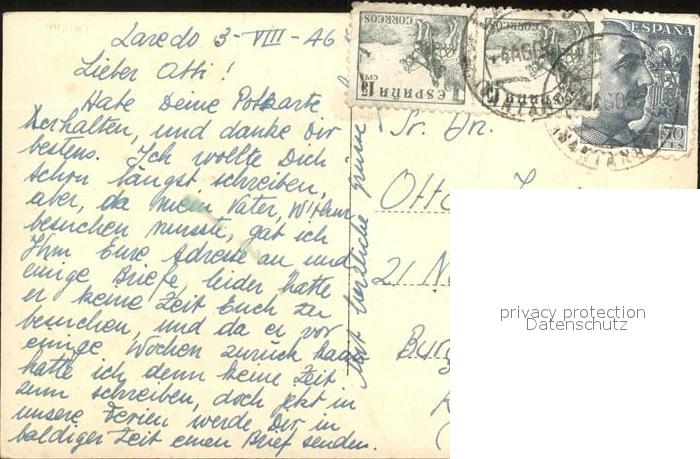 Laredo 3-VIII-46
Lieber Otti!
Habe Deine Postkarte
erhalten, und danke Dir
bestens. Ich wollte Dich
schon längst schreiben,
aber, da mein Vater,
besuchen musste, gab ich
Ihm Eure Adresse an und
einige Briefe, leider hatte
er keine Zeit Euch zu
besuchen, und da er vor
einige Wochen zurück kam
hatte ich denn keine Zeit
zum schreiben, doch jetzt in
unsere Ferien werde Dir in
baldiger Zeit einen Brief senden.
herzliche Grüsse
CORREOS
ESPAÑA
15 CTS
CORREOS
ESPAÑA
15
ESPAÑA
50
CTS
Sr. Dn.
Otto
21
Burg
privacy protection
Datenschutz